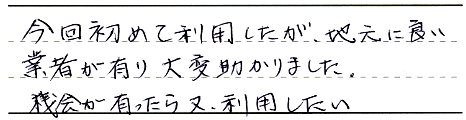 今回初めて利用したが、地元に良い
業者が有り大変助かりました。
機会が有ったら又、利用したい